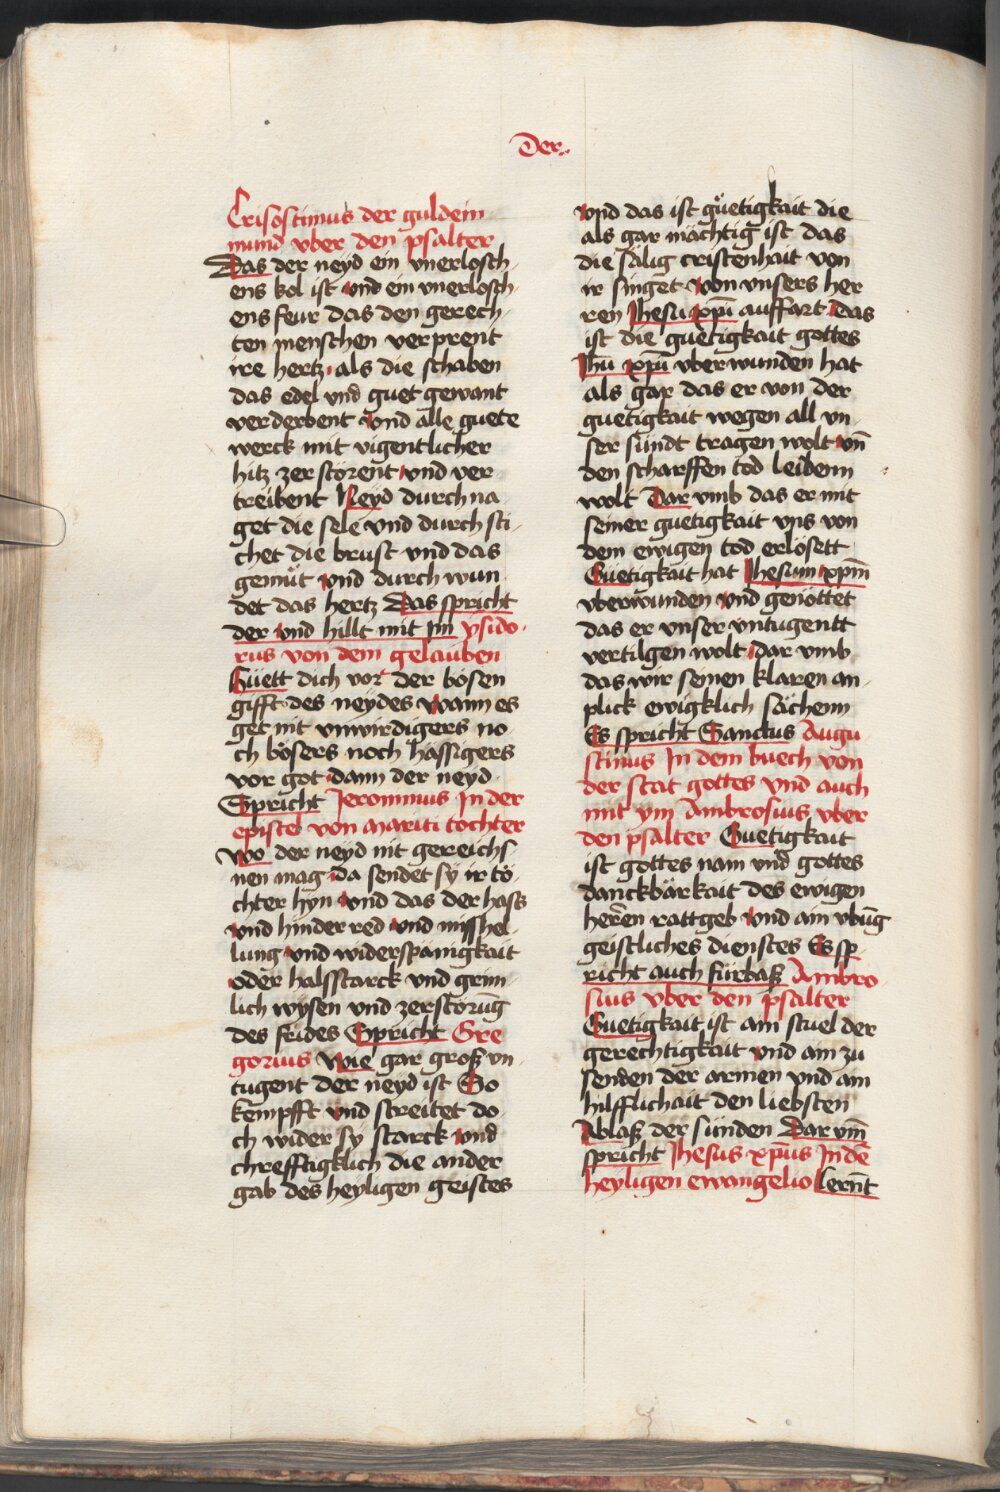 Der
Crisostimus der guldein
mund vber den psalter
Das der neyd ein vnerlosch
ens kol ist vnd ein vnerlosch
ens feur das den gerech
ten menschen verprent
ire hertz als die schaben
das edel vnd guet gewant
verderbent vnd alle guete
werck mit vigentlicher
hitz zerstörent vnd ver
treibent Neyd durch na
get die sele vnd durch sti
chet die brust vnd das
gemüt vnd durch wun
det das hertz Das spricht
der vnd hillt mit im ysido
rus von dem gelauben
Hüett dich vor der bösen
gifft des neydes wann es
get nit vnwirdigers no
ch bösers noch hässigers
vor got dann der neyd
Spricht Jeronimus In der
epistel von mariti tochter
Wo der neyd nit gereichs
nen mag da sendet sy ir tö
chter hyn vnd das der hass
vnd hinder red vnd misshel
lung vnd widerspänigkait
oder halsstarck vnd grim
lich wysen vnd zerstörūg
des frides Spricht Gre
gorius Wie gar groß vn
tugent der neyd ist So
kempfft vnd streitet do
ch wider sy starck vnd
chrefftigklich die ander
gab des heyligen geistes
vnd das ist güetigkait die
als gar mächtig ist das
die sälig cristenhait von
ir singet von vnsers her
ren Jhesu xpī auffart das
ist die guetigkait gottes
Jhū xpū vberwunden hat
als gar das er von der
guetigkait wegen all vn
ser sündt tragen wolt vn̄
den scharffen tod leidenn
wolt Dar vmb das er mit
seiner guetigkait vns von
dem ewigen tod erlösett
Güetigkait hat Jhesum xpm̄
vberwunden vnd genöttet
das er vnser vntugentt
vertilgen wolt dar vmb
das wir seinen klaren an
plick ewigklich sächenn
Es spricht Sanctus Augu
stinus In dem buech von
der stat gottes vnd auch
mit ym Ambrosius vber
den psalter Guetigkait
ist gottes nam vnd gottes
danckbärkait des ewigen
herren rattgeb vnd ain vbūg
geistliches dienstes Es sp
richt auch fürbaß Ambro
sius vber den psalter
Guetigkait ist ain stuel der
gerechtigkait vnd ain zu
senden der armen vnd ain
hilfflichait den liebsten
Ablaß der sünden Dar vm̄
spricht Jhesus xpūs In dē
heyligen ewangelio Lernt̄